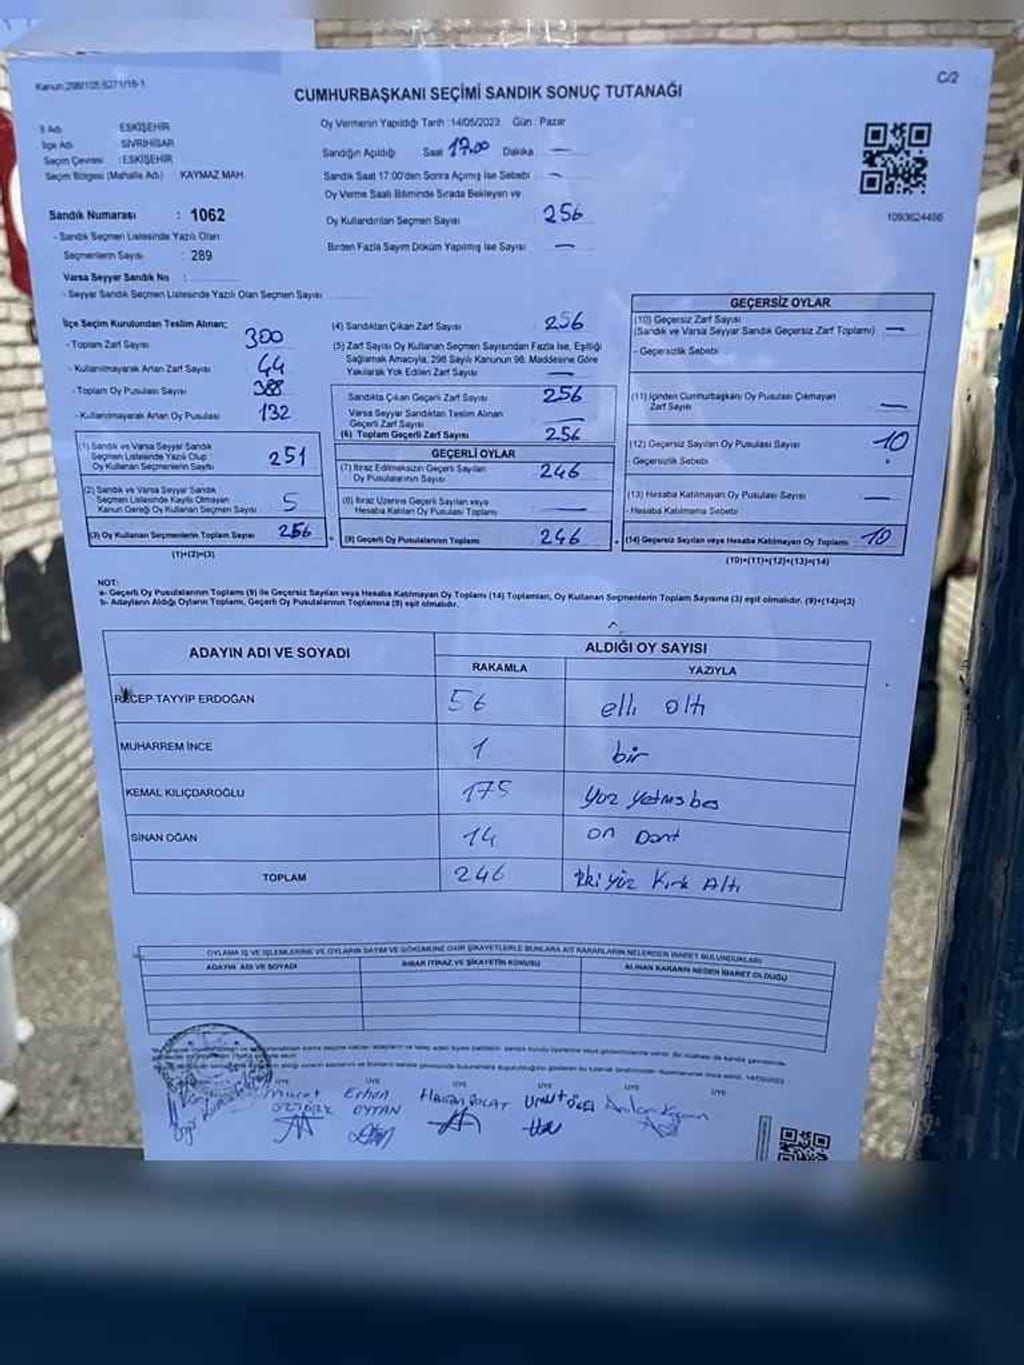 Kanun:298/105,6271/16-1
C/2
CUMHURBAŞKANI SEÇİMİ SANDIK SONUÇ TUTANAĞI
İl Adı ESKİŞEHİR
İlçe Adı SİVRİHİSAR
Seçim Çevresi :ESKİŞEHİR
Seçim Bölgesi (Mahalle Adı) KAYMAZ MAH.
Oy Vermenin Yapıldığı Tarih :14/05/2023 Gün : Pazar
Sandığın Açıldığı Saat 17.00 Dakika —
Sandık Saat 17:00'den Sonra Açımış İse Sebebi —
Oy Verme Saati Bitiminde Sırada Bekleyen ve
Oy Kullandırılan Seçmen Sayısı 256
Birden Fazla Sayım Döküm Yapılmış İse Sayısı —
1093624456
Sandık Numarası : 1062
- Sandık Seçmen Listesinde Yazılı Olan
Seçmenlerin Sayısı : 289
Varsa Seyyar Sandık No :
- Seyyar Sandık Seçmen Listesinde Yazılı Olan Seçmen Sayısı
İlçe Seçim Kurulundan Teslim Alınan;
- Toplam Zarf Sayısı 300
- Kullanılmayarak Artan Zarf Sayısı 44
- Toplam Oy Pusulası Sayısı 388
- Kullanılmayarak Artan Oy Pusulası 132
(1) Sandık ve Varsa Seyyar Sandık
Seçmen Listesinde Yazılı Olup
Oy Kullanan Seçmenlerin Sayısı 251
(2) Sandık ve Varsa Seyyar Sandık
Seçmen Listesinde Kayıtlı Olmayan
Kanun Gereği Oy Kullanan Seçmen Sayısı 5
(3) Oy Kullanan Seçmenlerin Toplam Sayısı 256
(1)+(2)=(3)
(4) Sandıktan Çıkan Zarf Sayısı 256
(5) Zarf Sayısı Oy Kullanan Seçmen Sayısından Fazla İse, Eşitliği
Sağlamak Amacıyla, 298 Sayılı Kanunun 98. Maddesine Göre
Yakılarak Yok Edilen Zarf Sayısı —
Sandıkta Çıkan Geçerli Zarf Sayısı 256
Varsa Seyyar Sandıktan Teslim Alınan
Geçerli Zarf Sayısı —
(6) Toplam Geçerli Zarf Sayısı 256
GEÇERLİ OYLAR
(7) İtiraz Edilmeksizin Geçerli Sayılan
Oy Pusulalarının Sayısı 246
(8) İtiraz Üzerine Geçerli Sayılan veya
Hesaba Katılan Oy Pusulası Toplamı —
(9) Geçerli Oy Pusulalarının Toplamı 246
GEÇERSİZ OYLAR
(10) Geçersiz Zarf Sayısı
(Sandık ve Varsa Seyyar Sandık Geçersiz Zarf Toplamı) —
- Geçersizlik Sebebi
(11) İçinden Cumhurbaşkanı Oy Pusulası Çıkmayan
Zarf Sayısı —
(12) Geçersiz Sayılan Oy Pusulası Sayısı 10
- Geçersizlik Sebebi
(13) Hesaba Katılmayan Oy Pusulası Sayısı —
- Hesaba Katılmama Sebebi
(14) Geçersiz Sayılan veya Hesaba Katılmayan Oy Toplamı 10
(10)+(11)+(12)+(13)=(14)
NOT:
a- Geçerli Oy Pusulalarının Toplamı (9) ile Geçersiz Sayılan veya Hesaba Katılmayan Oy Toplamı (14) Toplamları, Oy Kullanan Seçmenlerin Toplam Sayısına (3) eşit olmalıdır. (9)+(14)=(3)
b- Adayların Aldığı Oyların Toplamı, Geçerli Oy Pusulalarının Toplamına (9) eşit olmalıdır.
ADAYIN ADI VE SOYADI
ALDIĞI OY SAYISI
RAKAMLA YAZIYLA
RECEP TAYYİP ERDOĞAN 56 elli altı
MUHARREM İNCE 1 bir
KEMAL KILIÇDAROĞLU 175 yüz yetmişbeş
SİNAN OĞAN 14 on Dört
TOPLAM 246 İki yüz Kırk Altı
OYLAMA İŞ VE İŞLEMLERİNE VE OYLARIN SAYIM VE DÖKÜMÜNE DAİR ŞİKAYETLERLE BUNLARA AİT KARARLARIN NELERDEN İBARET BULUNDUKLARI
ADAYIN ADI VE SOYADI İHBAR İTİRAZ VE ŞİKAYETİN KONUSU ALINAN KARARIN NEDEN İBARET OLDUĞU
ÜYE ÜYE ÜYE ÜYE ÜYE ÜYE
Murat ÖZTÜRK
Erhan OYTAN
Hasan POLAT
Umut